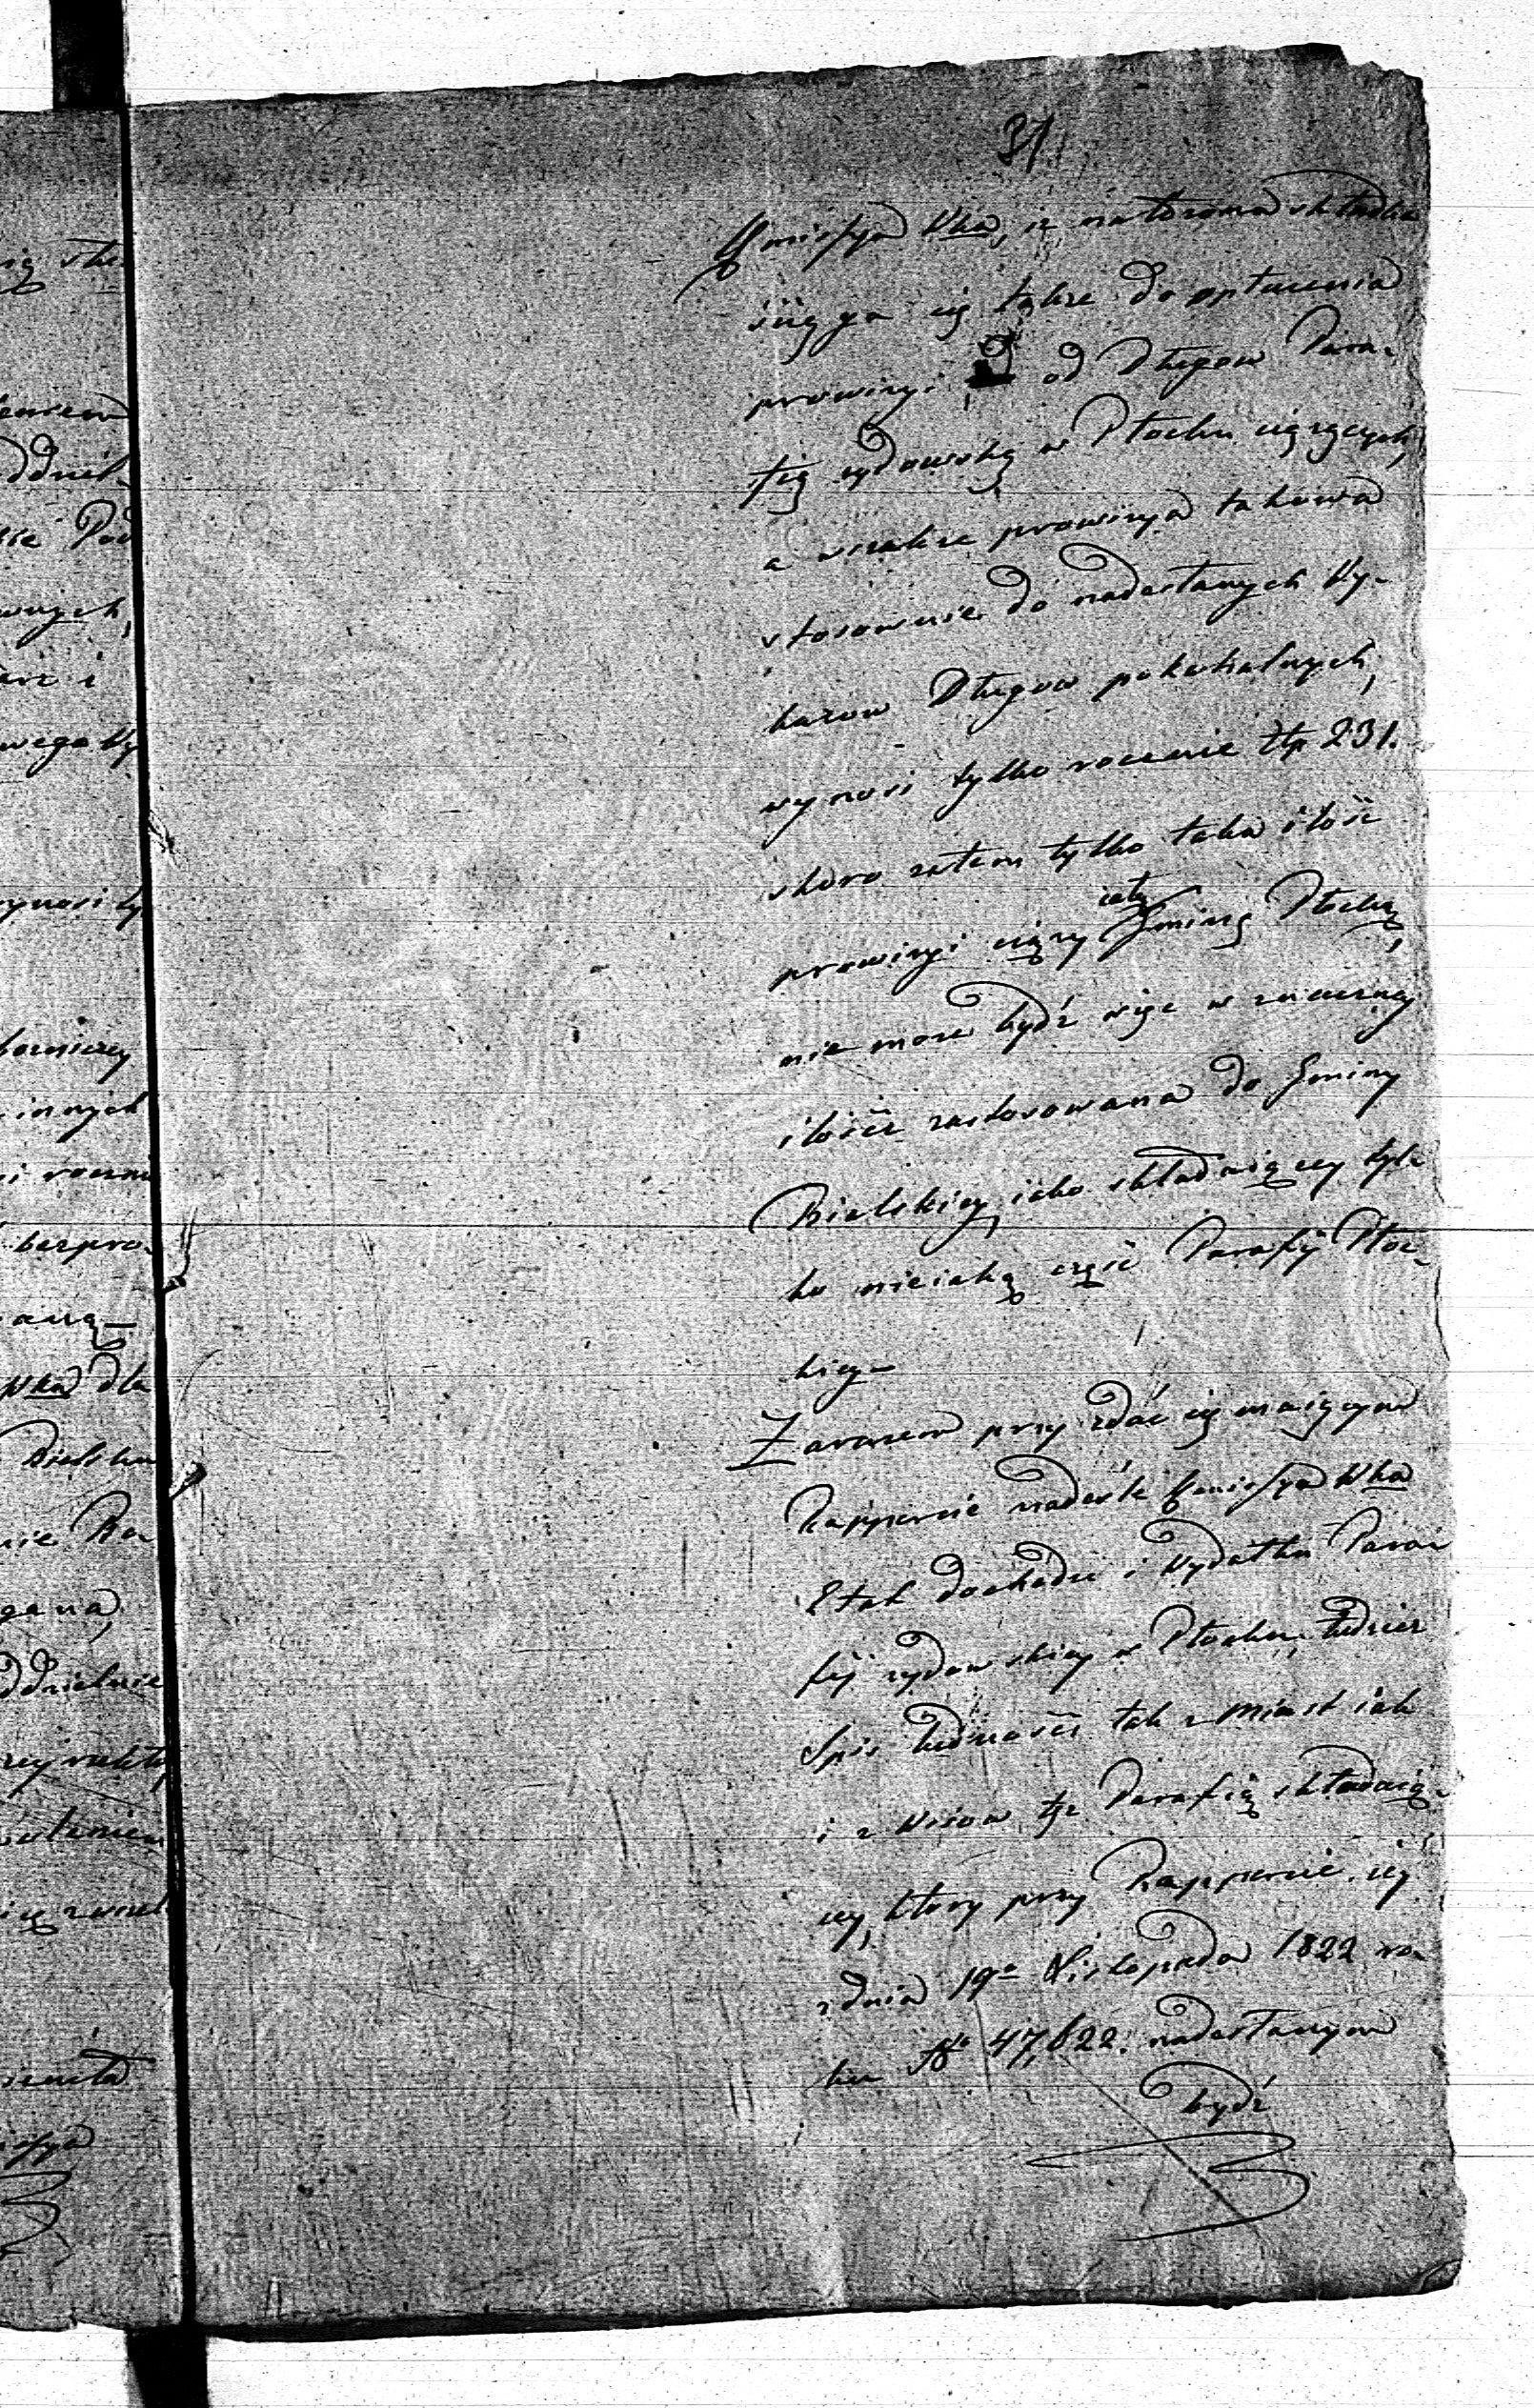 31
Kmissya Wka, iż nałożona składka
ściąga się także do opłacenia
prowizyi od Długow Para-
fią żydowską w Płocku ciążących,
a wszakże prowizya takowa
stosownie do nadesłanych Wy-
kazow Długow pokahalnych,
wynosi tylko rocznie Złp 231.
skoro zatem tylko taka ilość
prowizyi ciąży całą Gminę Płocką,
nie może bydź więc w znaczney
ilości zastosowana do Gminy
Bielskiey, iako składaiącey tyl-
ko nieiaką część Parafii Płoc-
kiey —
Zarazem przy zdać się maiącym
Rapporcie nadeśle Kmissya Wka
Etat dochodu i Wydatku Para-
fij żydowskiey w Płocku, tudzież
Spis ludności tak z Miast iak
i z Wsiow tę Parafią składaią-
cy, ktory przy Rapporcie iey
z dnia 19º Listopada 1822 ro-
ku Nº 47,622. nadesłanym
bydź
ną
Pod
wnych,
i
wego Wy
wynosi ty
innych
bezpro-
Wka dla
Bielsku
nie
oddzielnie